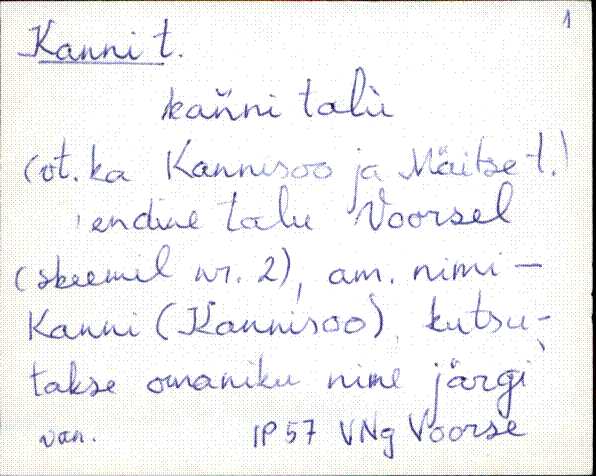 1
Kanni t.
kan̆ni talù
(vt. ka Kannisoo ja Mäitse t.)
endine talu Voorsel
(skeemil nr. 2), am. nimi –
Kanni (Kannisoo), kutsu-
takse omaniku nime järgi
van. IP 57 VNg Voorse